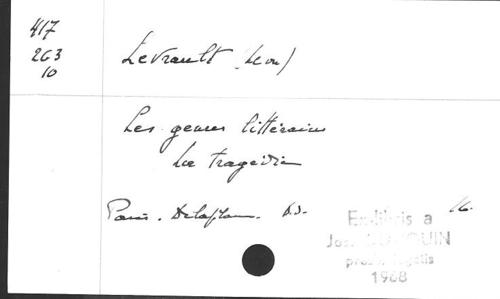 417
263
10
Levrault (Léon)
Les genres littéraires
La tragédie
Paris. Delaplane. S.d.
16.
Ex-libris a
1968